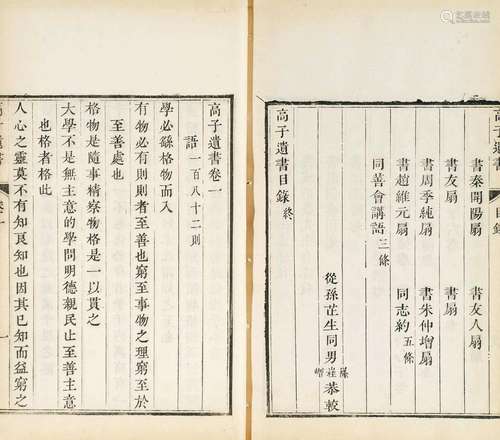 高子遺書 目錄
書秦開陽扇 書友人扇
書友扇 書扇
書周季純扇 書朱仲增扇
書趙維元扇 同志約五條
同善會講語三條
從孫芷生同男 恭較
高子遺書目錄終
高子遺書卷一
語一百八十二則
學必繇格物而入
有物必有則則者至善也窮至事物之理窮至於
至善處也
格物是隨事精察物格是一以貫之
大學不是無主意的學問明德親民止至善主意
也格者格此
人心之靈莫不有知良知也因其已知而益窮之
高子遺書 卷一 一